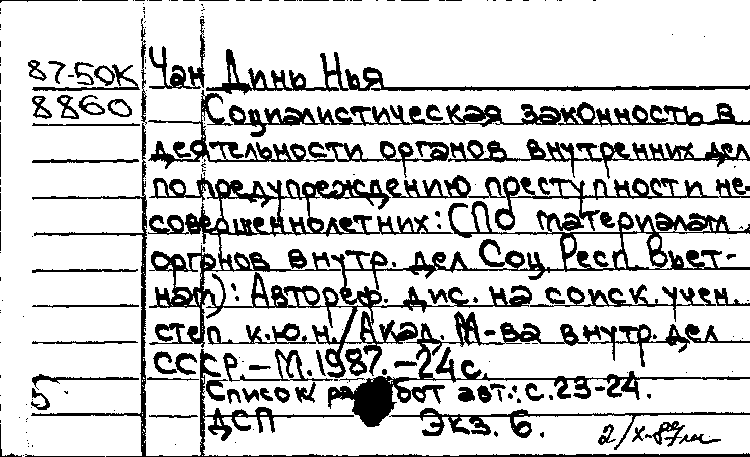 87-50к Чан Динь Нья
8860 Социалистическая законность в
деятельности органов внутренних дел
по предупреждению преступности не-
совершеннолетних: (По материалам
органов внутр. дел Соц. Респ. Вьет-
нам): Автореф. дис. на соиск. учен.
степ. к.ю.н./Акад. М-ва внутр. дел
СССР.-М. 1987.-24с.
5 Список работ авт.: с.23-24.
ДСП Экз. 6.